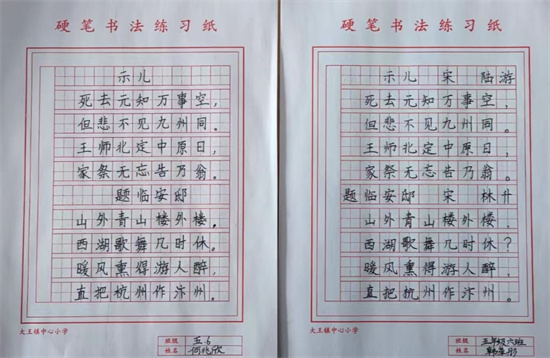 硬笔书法练习纸
示儿
死去元知万事空，
但悲不见九州同。
王师北定中原日，
家祭无忘告乃翁。
题临安邸
山外青山楼外楼，
西湖歌舞几时休。
暖风熏得游人醉，
直把杭州作汴州。
大王镇中心小学
班级 五.6
姓名 何兆欣
硬笔书法练习纸
示儿 宋 陆游
死去元知万事空，
但悲不见九州同。
王师北定中原日，
家祭无忘告乃翁。
题临安邸 宋 林升
山外青山楼外楼，
西湖歌舞几时休？
暖风熏得游人醉，
直把杭州作汴州。
大王镇中心小学
班级 五年级六班
姓名